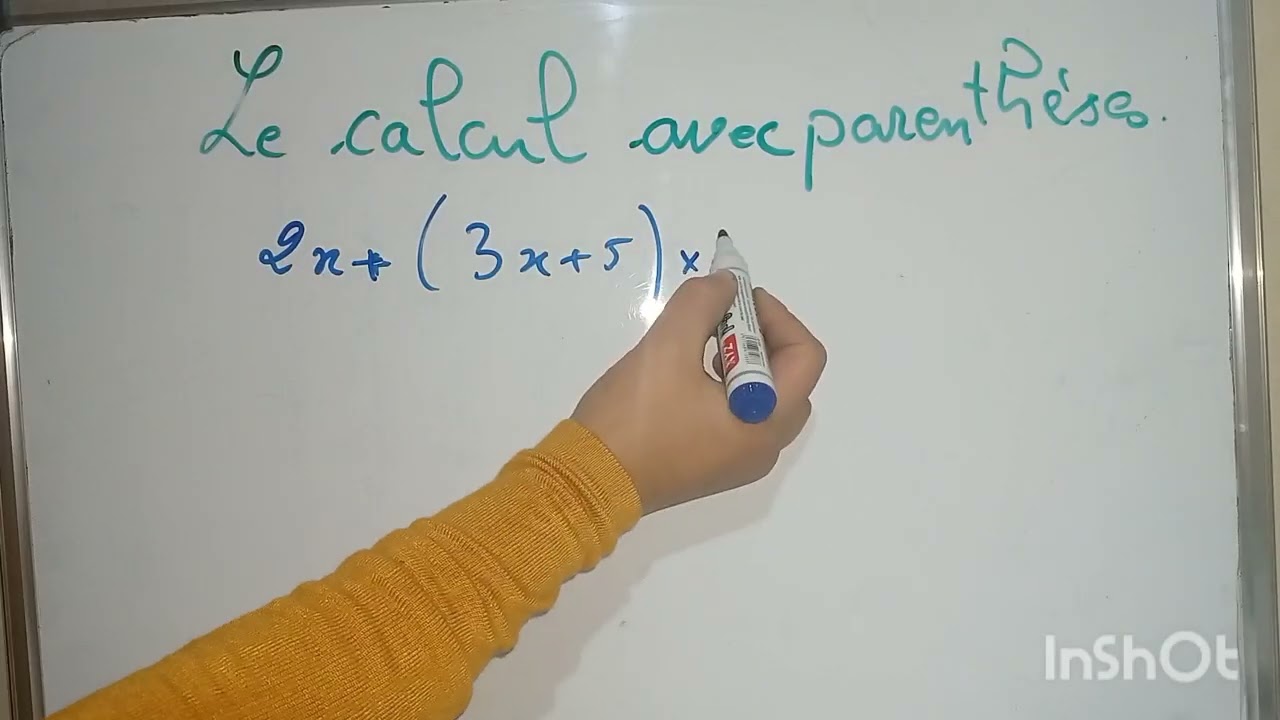 Le calcul avec parenthéses.
2x + ( 3x + 5 ) ×
InShOt